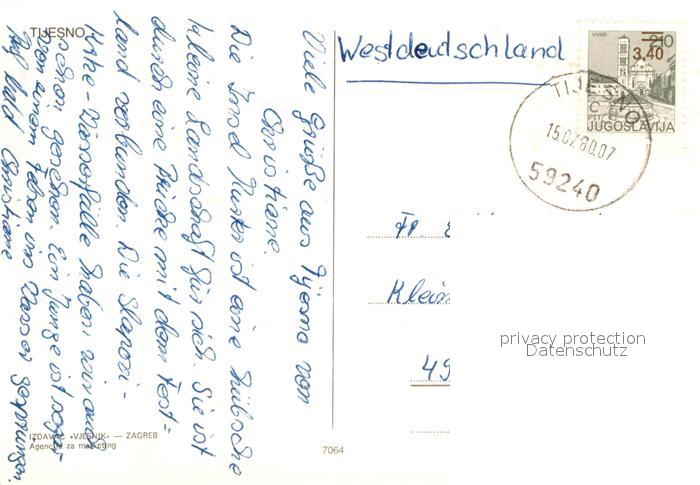 TIJESNO
Viele Grüße aus Tijesno von
Christiane.
Die Insel Murter ist eine hübsche
kleine Landschaft für sich. Sie ist
durch eine Brücke mit dem Fest=
land verbunden. Die Slapovi-
Krka-Wasserfälle haben wir auch
schon gesehen. Ein Junge ist sogar
von einem Felsen ins Wasser gesprungen.
Auf bald Christiane
Westdeutschland
HVAR
3,40
PTT
JUGOSLAVIJA
TIJESNO
15.07.80.07
59240
Fr.
Klein
49
privacy protection
Datenschutz
IZDAVAČ «VJESNIK» — ZAGREB
Agencija za marketing
7064